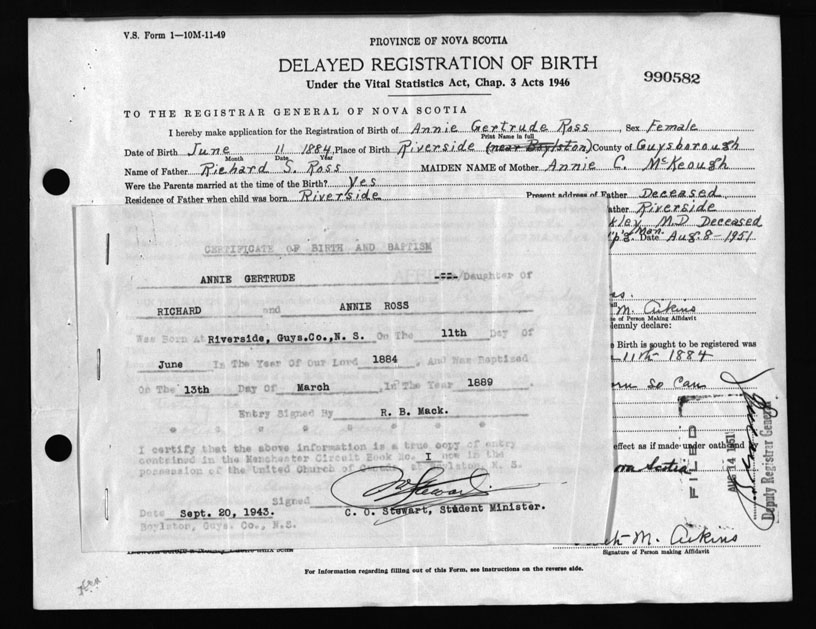 V.S. Form 1—10M-11-49
PROVINCE OF NOVA SCOTIA
DELAYED REGISTRATION OF BIRTH
Under the Vital Statistics Act, Chap. 3 Acts 1946
990582
TO THE REGISTRAR GENERAL OF NOVA SCOTIA
I hereby make application for the Registration of Birth of Annie Gertrude Ross, Sex Female
Print Name in full
Date of Birth June 11 1884, Place of Birth Riverside (near Boylston) County of Guysborough
Month Date Year
Name of Father Richard S. Ross MAIDEN NAME of Mother Annie C. McKeough
Were the Parents married at the time of the Birth? Yes
Residence of Father when child was born Riverside Present address of Father Deceased
ather Riverside
kley M.D Deceased
Date Aug. 8 - 1951
CERTIFICATE OF BIRTH AND BAPTISM
ANNIE GERTRUDE Daughter of
RICHARD and ANNIE ROSS
Was Born At Riverside, Guys.Co.,N. S. On The 11th Day Of
June In The Year Of Our Lord 1884, And Was Baptised
On The 13th Day Of March, In The Year 1889
Entry Signed By R. B. Mack.
I certify that the above information is a true copy of entry
contained in the Manchester Circuit Book No. I now in the
possession of the United Church of Canada at Boylston, N. S.
Signed
Date Sept. 20, 1943. C. O. Stewart, Student Minister.
Boylston, Guys. Co., N.S.
M. Aikins
e of Person Making Affidavit
lemnly declare:
Birth is sought to be registered was
11th 1884
so can
effect as if made under oath and
ova Scotia
FILED
AUG 14 1951
Deputy Registrar General
M. Aikins
Signature of Person making Affidavit
For Information regarding filling out of this Form, see instructions on the reverse side.